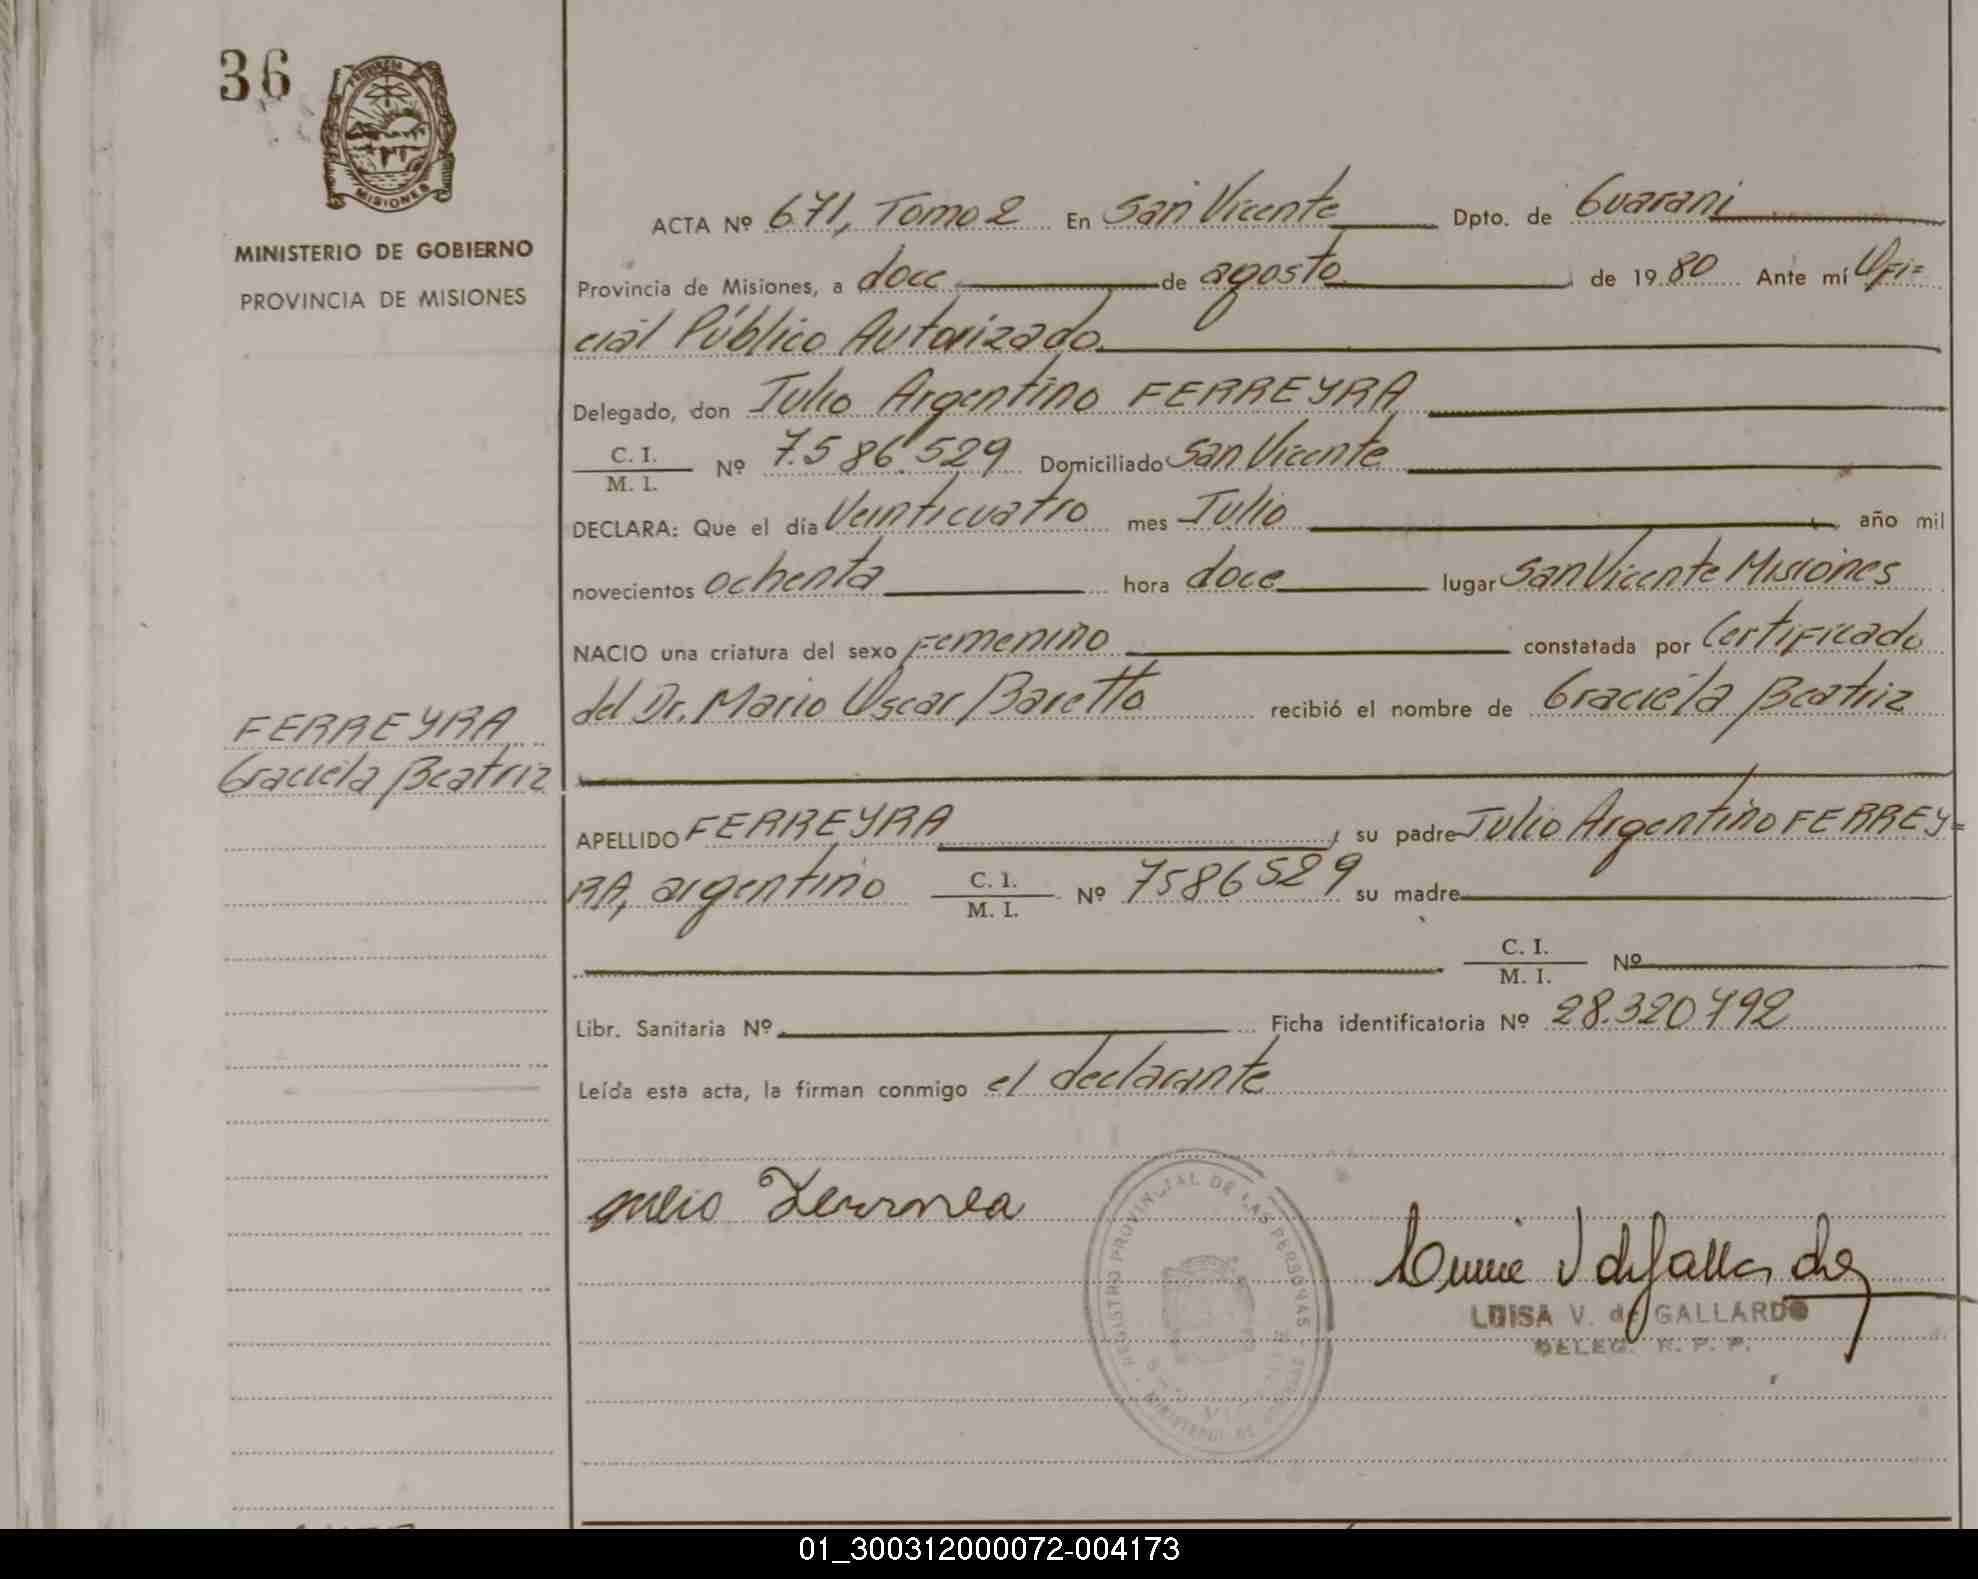 36
PROVINCIA
MISIONES
MINISTERIO DE GOBIERNO
PROVINCIA DE MISIONES
FERREYRA
Graciela Beatriz
ACTA Nº 671, Tomo 2 En San Vicente Dpto. de Guaraní
Provincia de Misiones, a doce de agosto de 1980 Ante mí Ofi=
cial Público Autorizado
Delegado, don Julio Argentino FERREYRA
C. I.
M. I. Nº 7.586.529 Domiciliado San Vicente
DECLARA: Que el día Veinticuatro mes Julio año mil
novecientos ochenta hora doce lugar San Vicente Misiones
NACIO una criatura del sexo Femenino constatada por Certificado
del Dr. Mario Oscar Baretto recibió el nombre de Graciela Beatriz
APELLIDO FERREYRA, su padre Julio Argentino FERREY=
RA, argentino C. I.
M. I. Nº 7586529 su madre
C. I.
M. I. Nº
Libr. Sanitaria Nº Ficha identificatoria Nº 28.320792
Leída esta acta, la firman conmigo el declarante
REGISTRO PROVINCIAL DE LAS PERSONAS
LUISA V. de GALLARDO
DELEG. R. P. P.
01_300312000072-004173